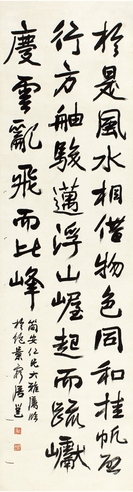 於是風水相借物色同和挂帆启
行方舳駿邁浮山崿起而疏巘
慶雲亂飛而比峰
簡安仁兄大雅屬
於絕景窮居